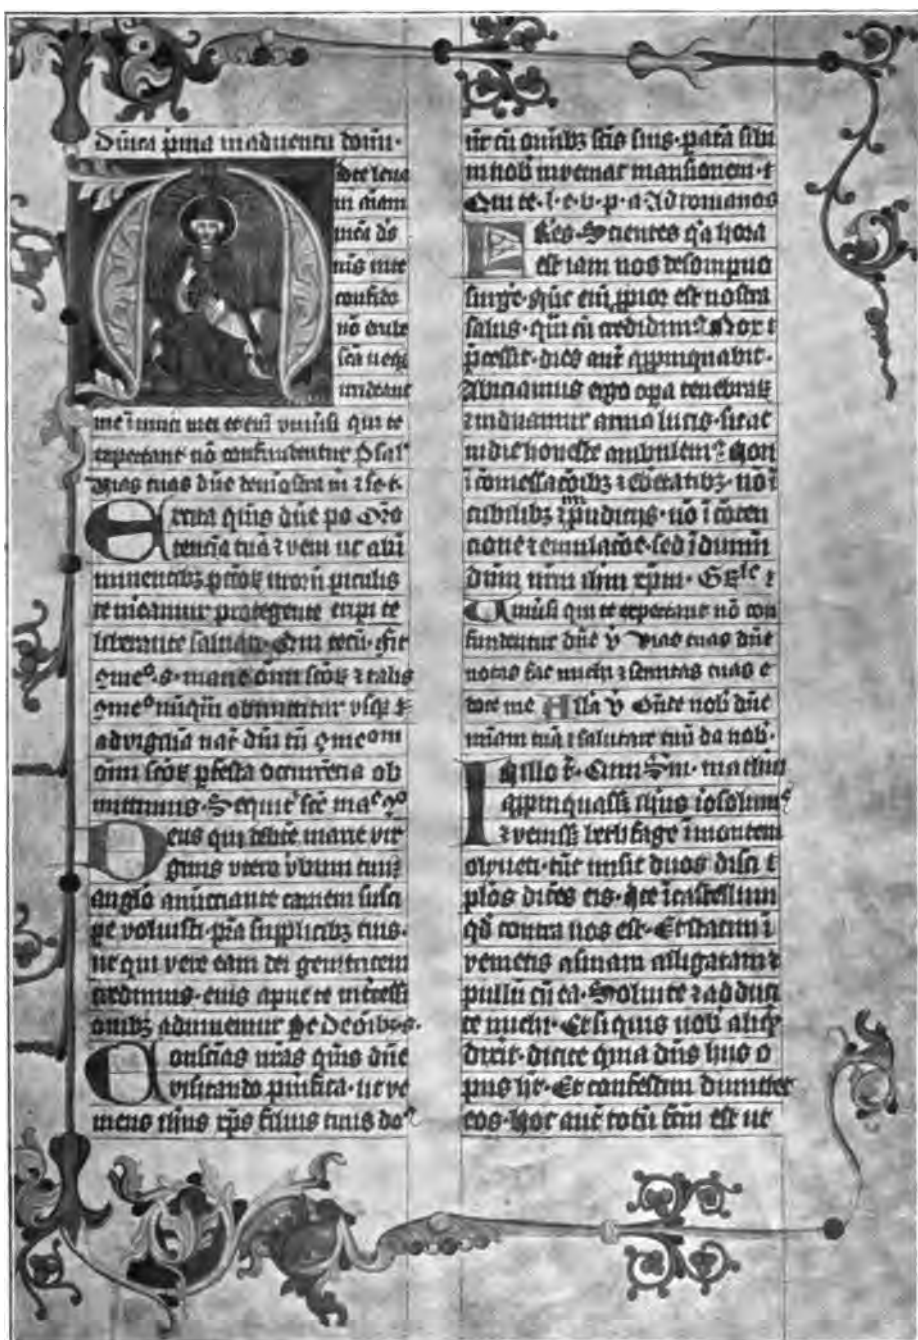 Dn̄ica p̄ma in adventu dom̄i·
te leva
vi aīam
meā ds̄
ꝯfido
nō erube
scā neqꝫ
irrideant
me īimici mei et em̄ vniūsi qui te
expectant nō confundentur Psal
vias tuas dn̄e demōstra m̄ ⁊ se t·
Excita qs̄ dn̄e po Oro
tenciā tuā ⁊ veni ut ab ī
minentibꝫ pctōꝝ nr̄orū piculis
te mēamur protegente eripi te
liberante salvari· Qui tecū·
ꝯme⁰·s· marie ōniū scōꝝ ⁊ talis
ꝯme⁰ nūqm̄ obmittitur vsqꝫ
ad vigiliā nat̄ dn̄i tn̄ ꝯme om̄
ōniū scōꝝ p̄ festa ob
mittimus· Sequit̄ scē ma
Deus qui de btē marie vir
ginis vtero v̄bum tuū
anglo anūciante carnem susci
pe voluisti· p̄sta supplicibꝫ tuis·
ut qui vere eam dei genitricem
credimus· eius apud te int̄cessi
onibꝫ adiuvemur
Conscias nr̄as qs̄ dn̄e
visitando purifica· ut ve
niens ihūs xp̄s filius tuus do
n̄r cū omībꝫ scīs suis· paratā sibi
in nob̄ inveniat mansionem·
Qui te· l· e· v· p· a· Ad romanos
Frēs· Scientes qa hora
est iam nos de sompno
surgē· nūc em̄ ꝓpior est nostra
salus· qm̄ cū credidim⁹· Nox
p̄cessit· dies aut̄ appinquabit·
Abiciamus ergo opa tenebraꝝ
⁊ induamur arma lucis· sicut
in die honeste ambulem⁹ Non
ī comessacōibꝫ ⁊ ebrietatibꝫ· nō ī
cubilibꝫ ⁊ īpudiciis· nō ī cōten
cione ⁊ emulacōe· sed īduimī
dn̄m nr̄m ihm̄ xpm̄·
Uniūsi qui te expectant nō con
fundentur dn̄e v̄ Vias tuas dn̄e
notas fac michi ⁊ semitas tuas e
doce me Alla v̄ Ōnde nob̄ dn̄e
m̄iam tuā ⁊ salutare tuū da nob̄·
In illo t̄· Cum
appinquasset ihūs iosolimis
⁊ venisset bethfage ī montem
olyueti· tūc misit duos disci
plos dicēs eis· Ite ī castellum
qd̄ contra vos est· Et statim ī
venietis asinam alligatam ⁊
pullū cū ea· Solvite ⁊ adduci
te michi· Et si quis vob̄ aliqd
dixit· dicite quia dn̄s hiis o
pus h̄t· Et confestim dimittet
eos· Hoc aut̄ totū fcm̄ est ut